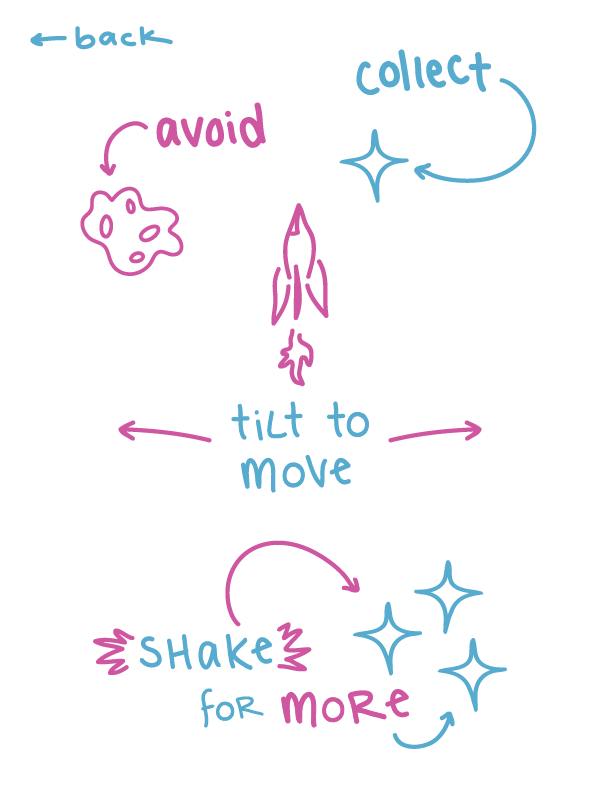 back
collect
avoid
tiLt to
move
SHake
foR moRe